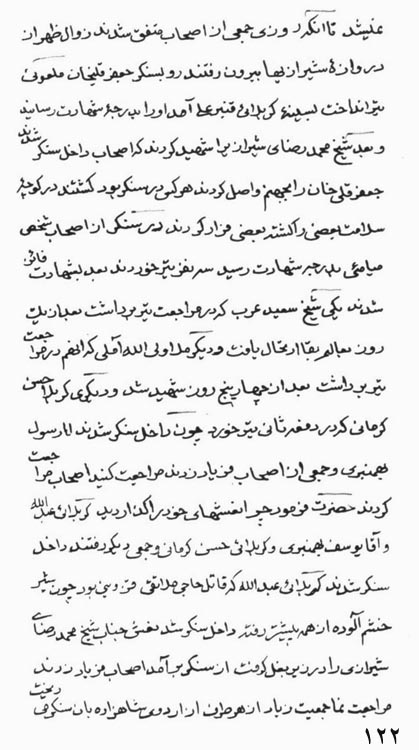 علیشد تا آنکه روزی جمعی از اصحاب متفق شدند زوال ظهر از
دروازهٔ شیرازیها بیرون رفتند رو بسنگر جعفر قلیخان ملعونی
تیر انداخت بسینهٔ کربلائی قنبر علی آمد او را بدرجهٔ شهادت رسانید
و بعد شیخ محمد رضای شیرازیرا شهید کردند که اصحاب داخل سنگر شدند
جعفر قلی خان را بجهنم واصل کردند هر کس در سنگر بود کشتند در کوچهٔ
سلامت بعضی را کشته بعضی فرار کردند در سنگر از اصحاب شخصی
میامئی بدرجه شهادت رسید سه نفر تیر خوردند بعد بشهادت فائز
شدند یکی شیخ سعید عرب که در مراجعت تیر برداشت بعد از یک
روز بعالم بقا ارتحال یافت و دیگر ملا ولی الله آملی که آنهم در مراجعت
تیر برداشت بعد از چهار پنج روز شهید شد و دیگری کربلائی حسن
کرمانی که در دفعه ثانی تیر خورد چون داخل سنگر شدند آقا رسول
بهمنیری و جمعی از اصحاب فریاد زدند مراجعت کنید اصحاب مراجعت
کردند حضرت فرمود چرا نعشهای خود را گذاردید کربلائی عبد الله
و آقا یوسف بهمنیری و کربلائی حسن کرمانی و جمعی دیگر رفتند داخل
سنگر شدند کربلائی عبد الله که قاتل حاجی ملا تقی قزوینی بود چون شیر
خشم آلوده از همه پیشتر رفته داخل سنگر شد نعش جناب شیخ محمد رضای
شیرازی را در زیر بغل گرفت از سنگر بر آمد اصحاب فریاد زدند
مراجعت نما جمعیت زیاد از هر طرف از اردوی شاهزاده بآن سنگر می ریخت
۱۲۲